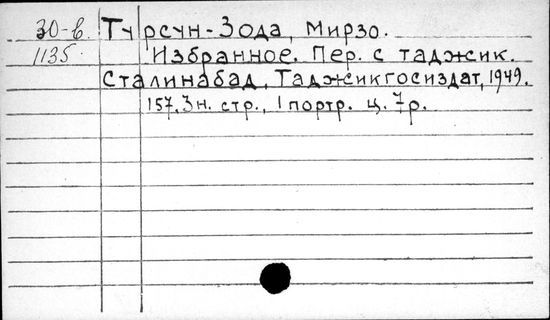 30-б Турсун-Зода, Мирзо.
1135. Избранное. Пер. с таджик.
Сталинабад, Таджикгосиздат, 1949.
157, 3 н. стр., 1 портр. ц. 7 р.